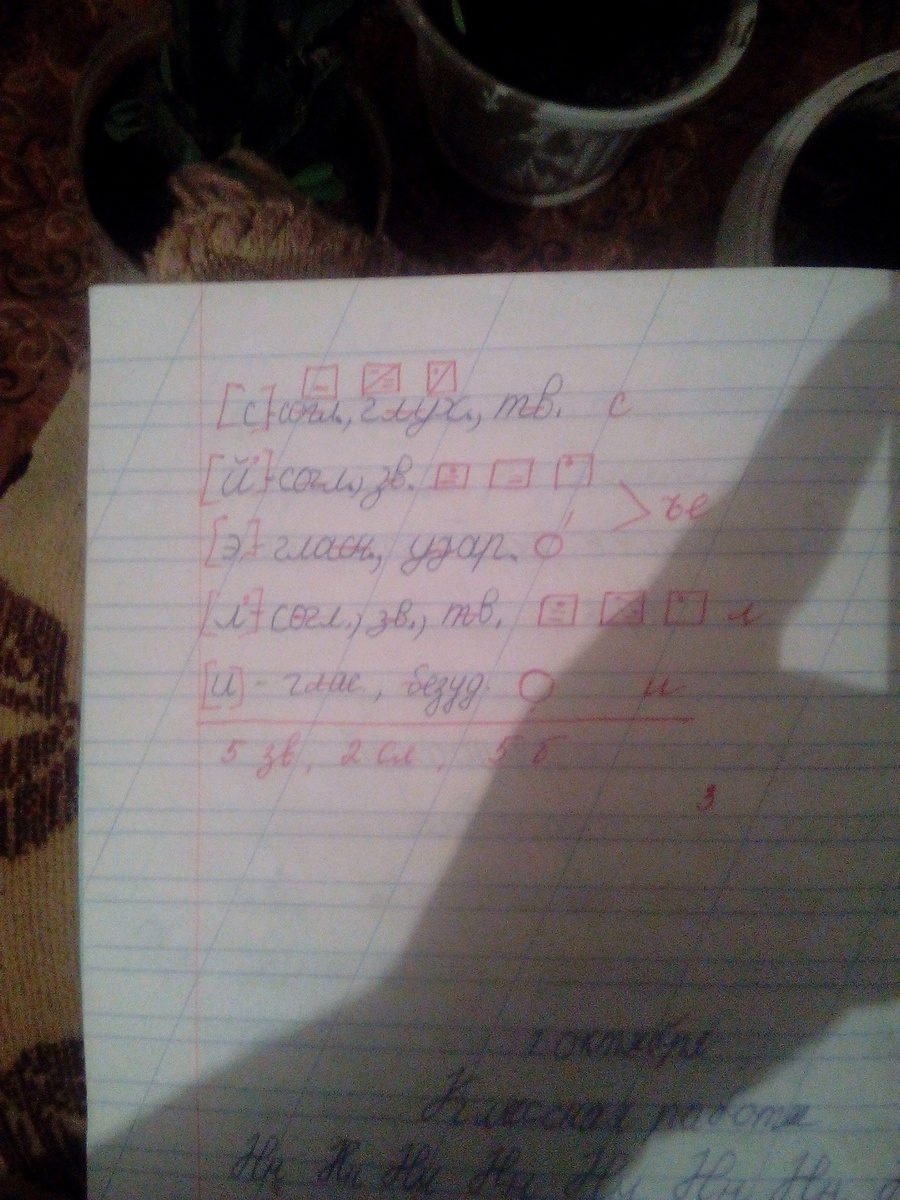 [с]-согл., глух., тв. с
[й°]-согл., зв.
ъе
[э]-гласн., удар.
[л°]-согл., зв., тв. л
[и] - глас., безуд. и
5 зв, 2 сл, 5 б
3
1 октября
Классная работа
Нн Нн Нн Нн Нн Нн Нн